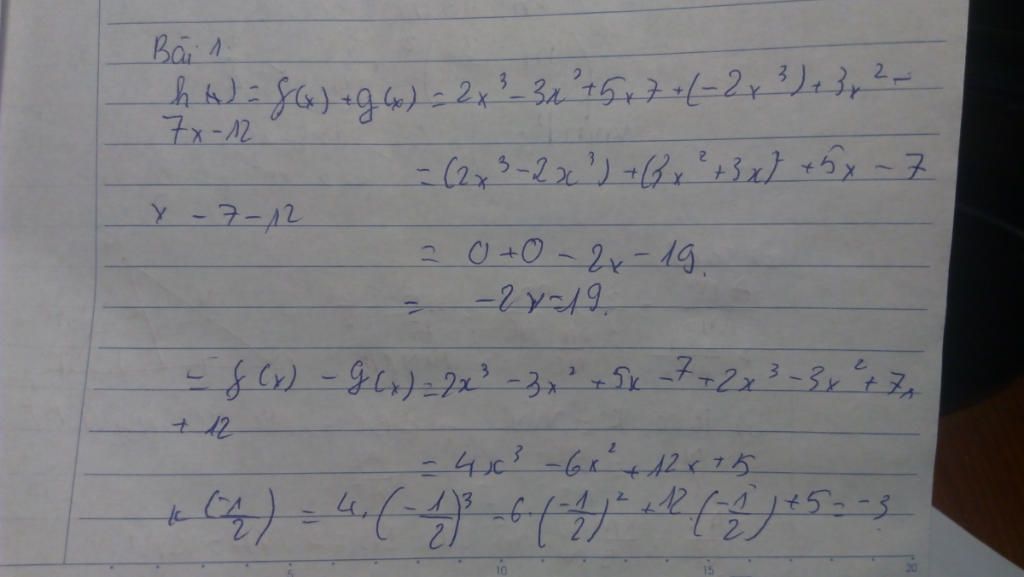 Bài 1.
h(x) = f(x) + g(x) = 2x³ - 3x² + 5x 7 + (-2x³) + 3x² -
7x - 12
= (2x³ - 2x³) + (3x² + 3x)² + 5x - 7
x - 7 - 12
= 0 + 0 - 2x - 19.
= -2x = 19.
= f(x) - g(x) = 2x³ - 3x² + 5x - 7 + 2x³ - 3x² + 7x
+ 12
= 4x³ - 6x² + 12x + 5
k(-1/2) = 4.(-1/2)³ - 6.(-1/2)² + 12.(-1/2) + 5 = -3
5 10 15 20